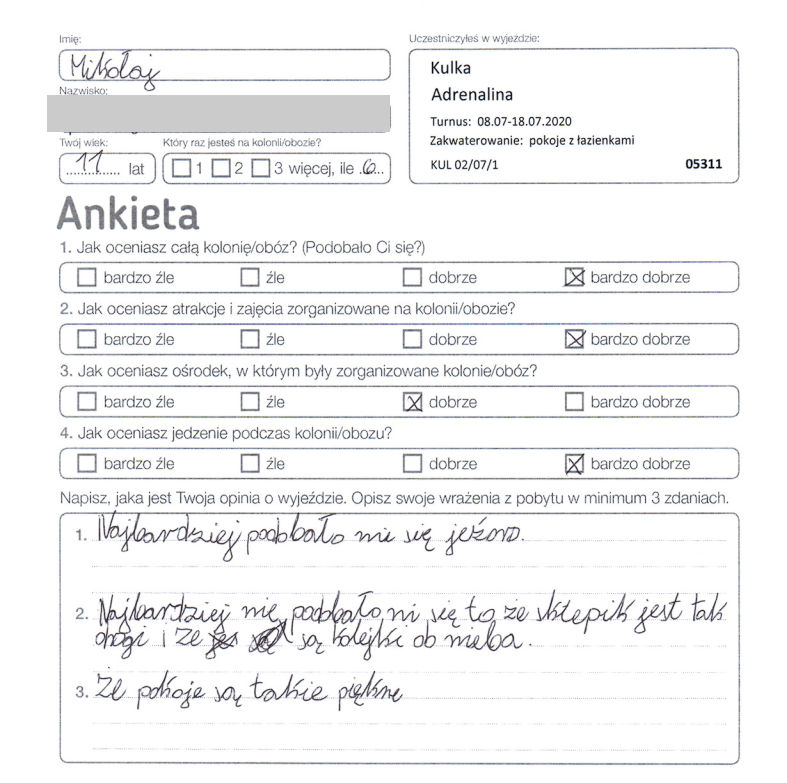 Imię:
Mikołaj
Uczestniczyłeś w wyjeździe:
Kulka
Adrenalina
Turnus: 08.07-18.07.2020
Zakwaterowanie: pokoje z łazienkami
KUL 02/07/1 05311
Nazwisko:
Twój wiek: Który raz jesteś na kolonii/obozie?
11 lat 1 2 3 więcej, ile 6
Ankieta
1. Jak oceniasz całą kolonię/obóz? (Podobało Ci się?)
bardzo źle źle dobrze bardzo dobrze
2. Jak oceniasz atrakcje i zajęcia zorganizowane na kolonii/obozie?
bardzo źle źle dobrze bardzo dobrze
3. Jak oceniasz ośrodek, w którym były zorganizowane kolonie/obóz?
bardzo źle źle dobrze bardzo dobrze
4. Jak oceniasz jedzenie podczas kolonii/obozu?
bardzo źle źle dobrze bardzo dobrze
Napisz, jaka jest Twoja opinia o wyjeździe. Opisz swoje wrażenia z pobytu w minimum 3 zdaniach.
1. Najbardziej podobało mi się
2. Najbardziej nie podobało mi się to że sklepik jest tak
drogi i że są kolejki do nieba.
3. Że pokoje są takie piękne